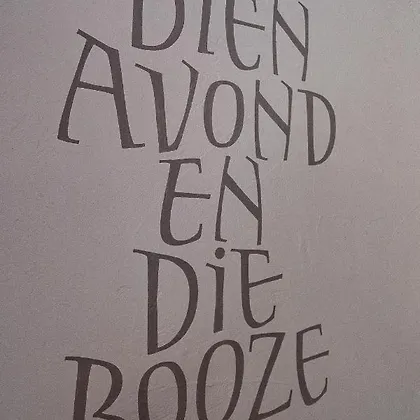 DIEN
AVOND
EN
DiE
ROOZE